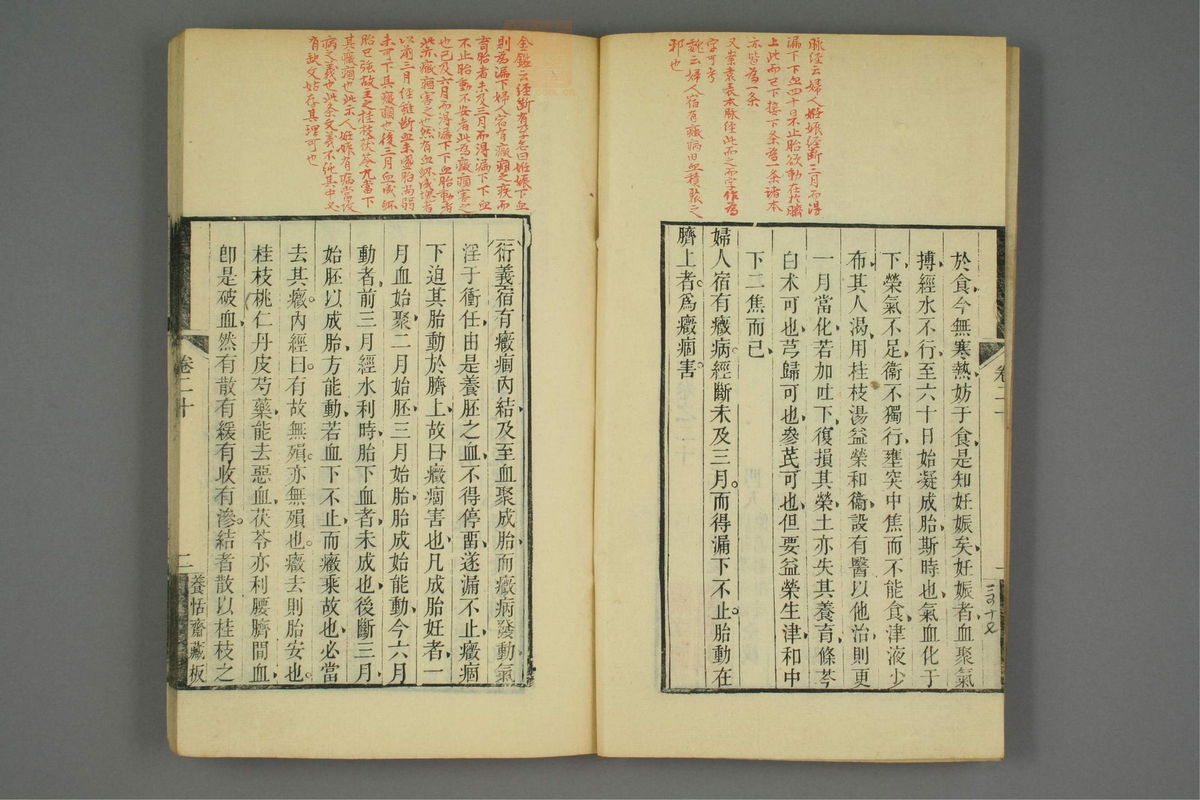 脉經云婦人妊娠經斷三月而得
漏下下血四十日不止胎欲動在於臍
上此而已下接下条為一条諸本
亦皆為一条
又崇袁表本脉經此而之而字作為
字可考
魏云婦人宿有癥病旧血積聚之
邪也
於食今無寒熱妨于食是知妊娠矣妊娠者血聚氣
搏經水不行至六十日始凝成胎斯時也氣血化于
下榮氣不足衞不獨行壅突中焦而不能食津液少
布其人渴用桂枝湯益榮和衞設有醫以他治則更
一月當化若加吐下復損其榮土亦失其養育條芩
白术可也芎歸可也參芪可也但要益榮生津和中
下二焦而已
婦人宿有癥病經斷未及三月而得漏下不止胎動在
臍上者爲癥痼害
卷二十
一
金鑑云經斷有孕名曰妊娠下血
則為漏下婦人宿有癥痼之疾而
育胎者未及三月而得漏下下血
不止胎動不安者此為癥痼害之
也已及六月而得漏下下血胎動者
此亦癥痼害之也然有血衃成塊者
以前三月經雖斷血未盛胎尚弱
未可下其癥痼也後三月血成衃
胎已強故主之桂枝茯苓丸當下
其癥痼也此示人妊娠有病當攻
病之義也此条文義不純其中必
有缺文姑存其理可也
衍義宿有癥痼內結及至血聚成胎而癥病發動氣
淫于衝任由是養胚之血不得停畱遂漏不止癥痼
下迫其胎動於臍上故曰癥痼害也凡成胎妊者一
月血始聚二月始胚三月始胎胎成始能動今六月
動者前三月經水利時胎下血者未成也後斷三月
始胚以成胎方能動若血下不止而癥乘故也必當
去其癥內經曰有故無殞亦無殞也癥去則胎安也
桂枝桃仁丹皮芍藥能去惡血茯苓亦利腰臍間血
卽是破血然有散有緩有收有滲結者散以桂枝之
卷二十
二
養恬齋藏板